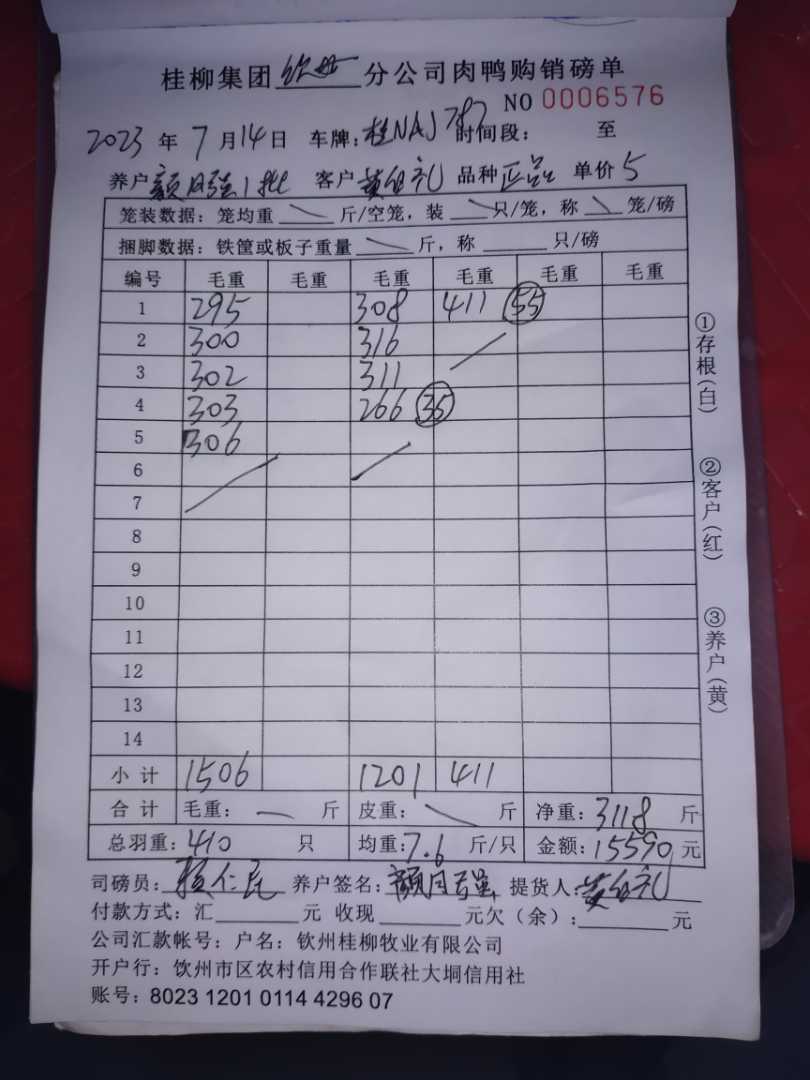 桂柳集团钦州分公司肉鸭购销磅单
NO 0006576
2023年7月14日 车牌:桂NAJ787 时间段: 至
养户颜月强1批 客户黄伯礼 品种正品 单价5
笼装数据:笼均重 斤/空笼,装 只/笼,称 笼/磅
捆脚数据:铁筐或板子重量 斤,称 只/磅
编号 毛重 毛重 毛重 毛重 毛重 毛重
1 295 308 411 55
2 300 316
3 302 311
4 303 266 35
5 306
6
7
8
9
10
11
12
13
14
小计 1506 1201 411
合计 毛重: 斤 皮重: 斤 净重:3118斤
总羽重:410 只 均重:7.6斤/只 金额:15590元
司磅员: 仁民 养户签名:颜月强 提货人:黄伯礼
付款方式:汇 元 收现 元欠(余): 元
公司汇款帐号:户名:钦州桂柳牧业有限公司
开户行:钦州市区农村信用合作联社大垌信用社
账号:8023 1201 0114 4296 07
①存根(白)
②客户(红)
③养户(黄)